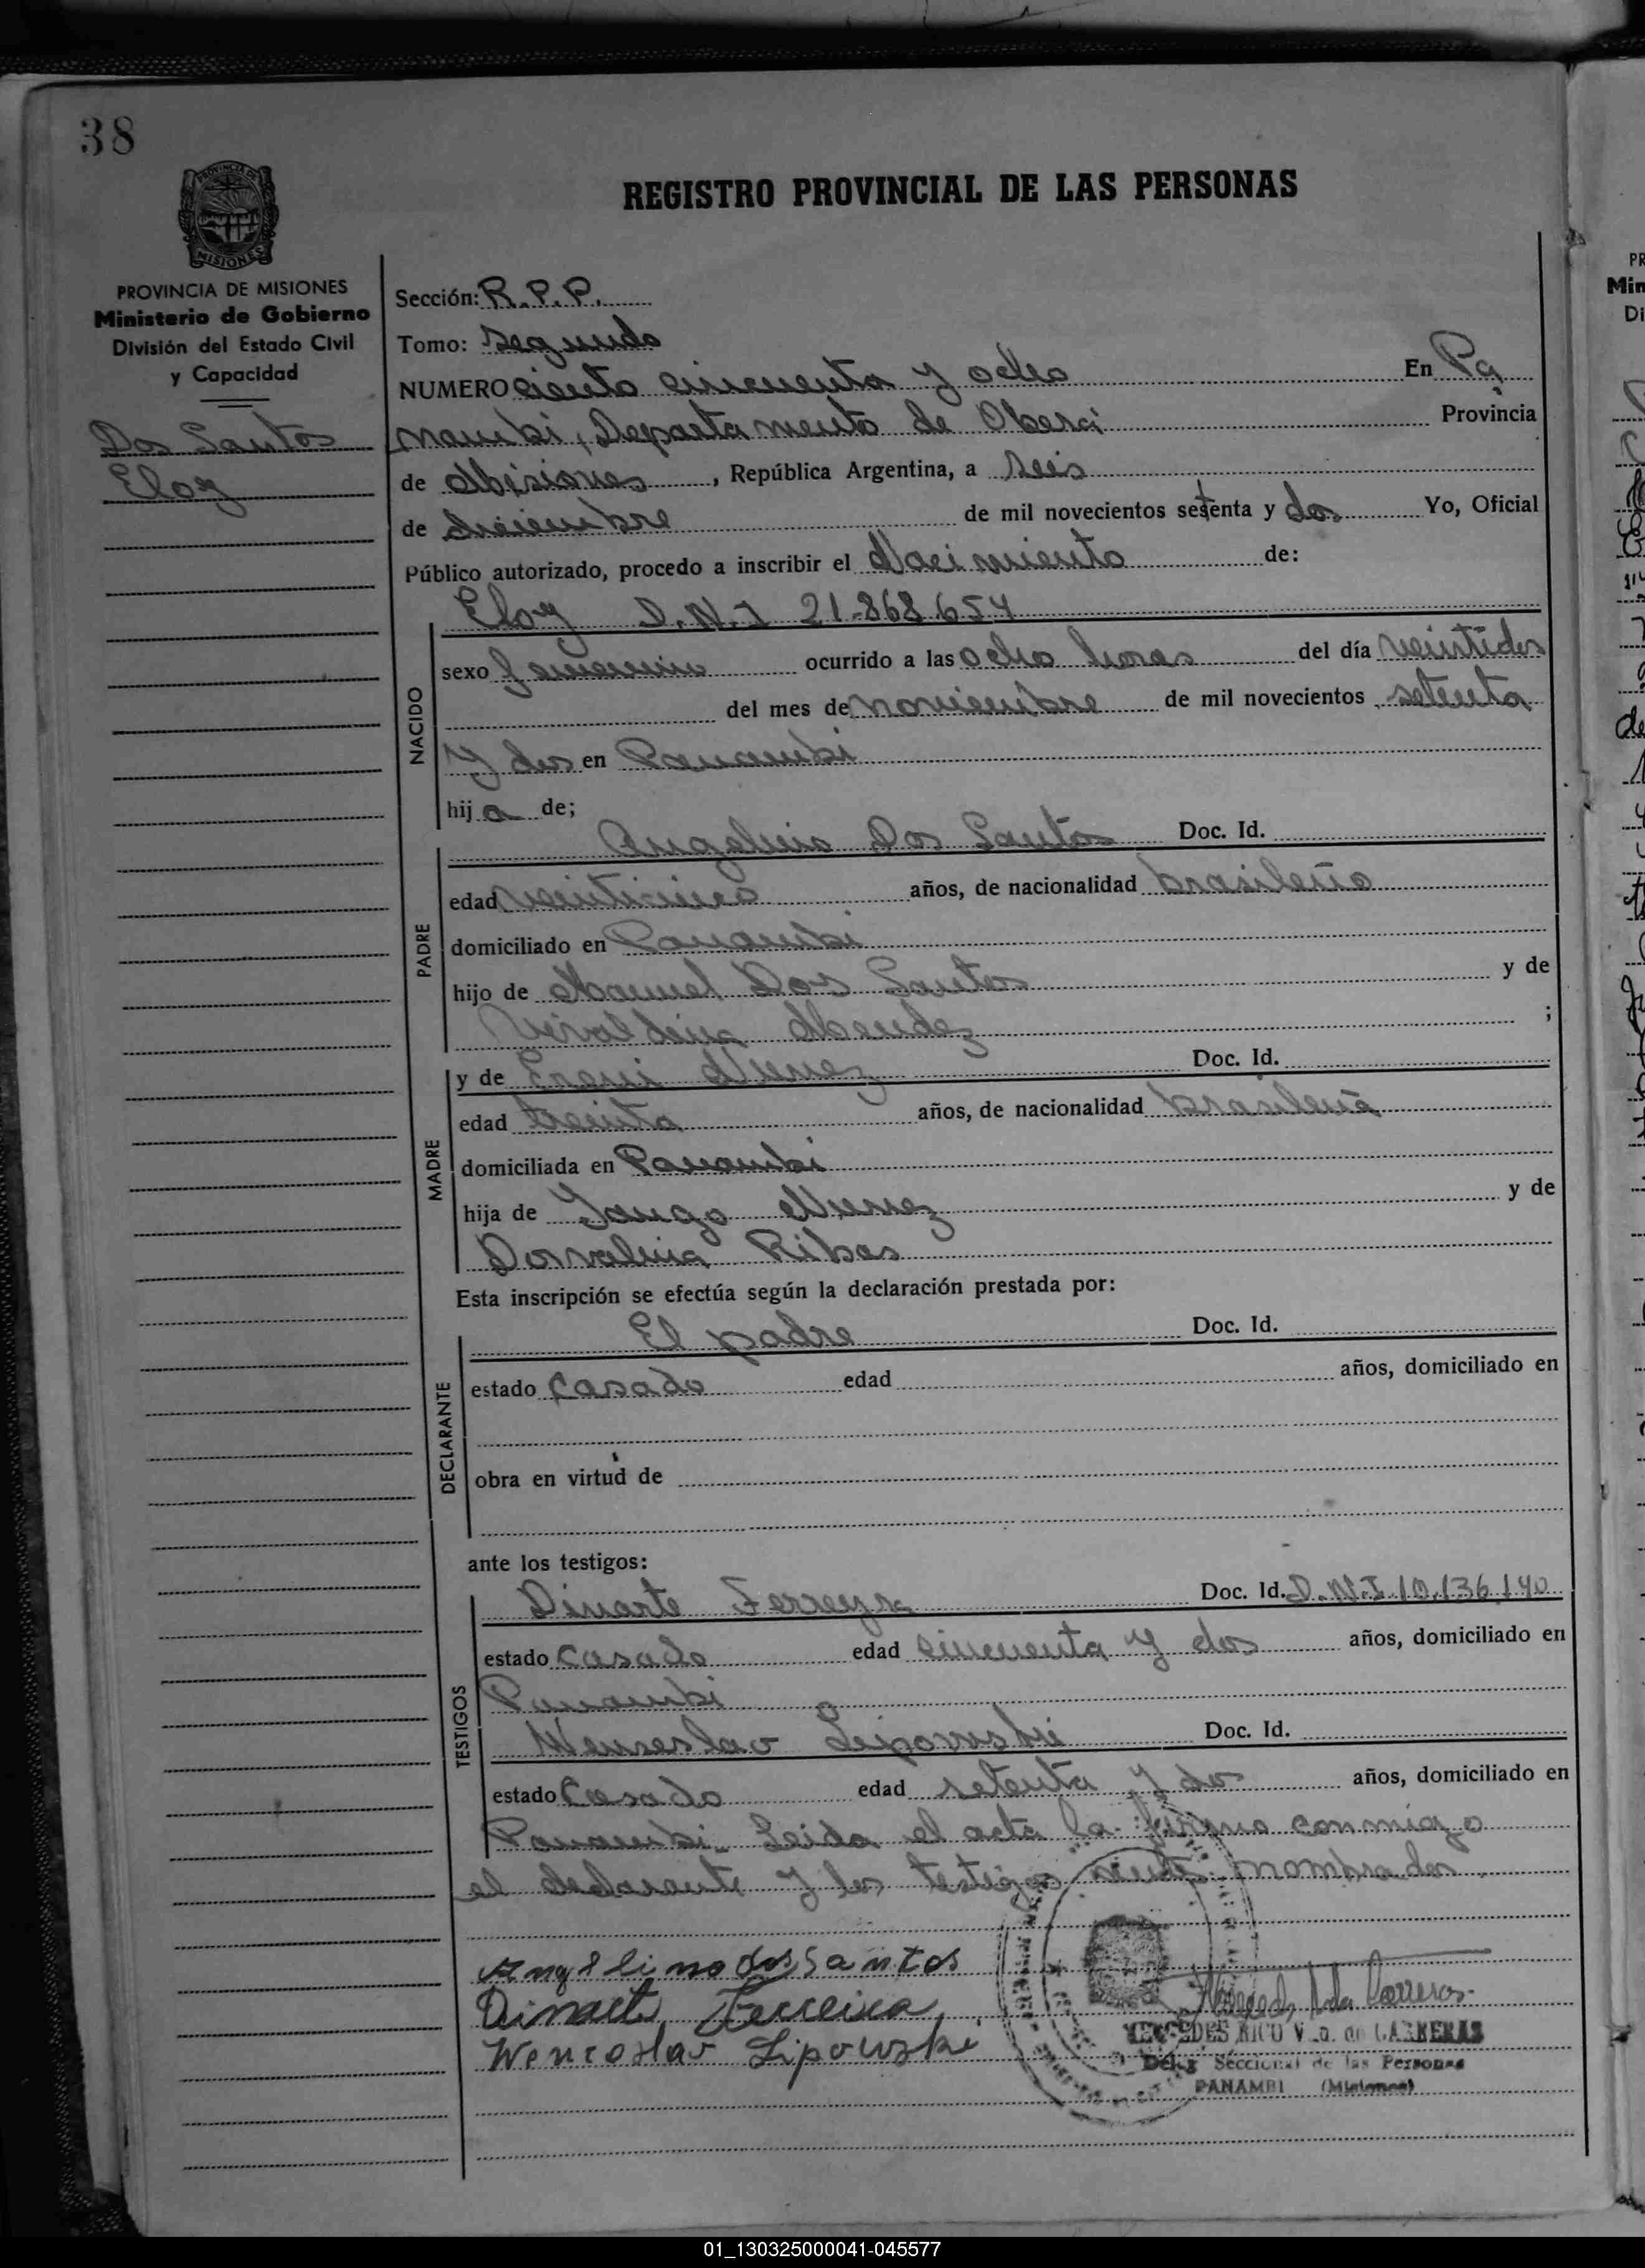 38
REGISTRO PROVINCIAL DE LAS PERSONAS
PROVINCIA DE MISIONES
Ministerio de Gobierno
División del Estado Civil
y Capacidad
Dos Santos
Eloy
Sección: R.P.P.
Tomo: segundo
NUMERO ciento cincuenta y ocho En Pa
nambi, Departamento de Oberá Provincia
de Misiones, República Argentina, a seis
de diciembre de mil novecientos setenta y dos Yo, Oficial
Público autorizado, procedo a inscribir el Nacimiento de:
Eloy D.N.I 21.868.654
NACIDO
sexo femenino ocurrido a las ocho horas del día veintidos
del mes de noviembre de mil novecientos setenta
y dos en Panambi
hija de;
PADRE
Angelino Dos Santos Doc. Id.
edad veinticinco años, de nacionalidad brasileño
domiciliado en Panambi
hijo de Manuel Dos Santos y de
Mendez ;
MADRE
y de Ereni Nunez Doc. Id.
edad treinta años, de nacionalidad brasileña
domiciliada en Panambi
hija de Nunez y de
Dorvalina Ribas
Esta inscripción se efectúa según la declaración prestada por:
DECLARANTE
El padre Doc. Id.
estado casado edad años, domiciliado en
obra en virtud de
ante los testigos:
TESTIGOS
Dinarte Ferreyra Doc. Id. D.N.I 10.136.140
estado casado edad cincuenta y dos años, domiciliado en
Panambi
Wenseslao Lipowski Doc. Id.
estado casado edad setenta y dos años, domiciliado en
Panambi. Leida el acta la firma conmigo
el declarante y los testigos nombrados.
Angelino dos santos
Dinarte Ferreira
Lipowski
MERCEDES RICO Vda. de CARRERAS
Deleg. Seccional de las Personas
PANAMBI (Misiones)
01_130325000041-045577